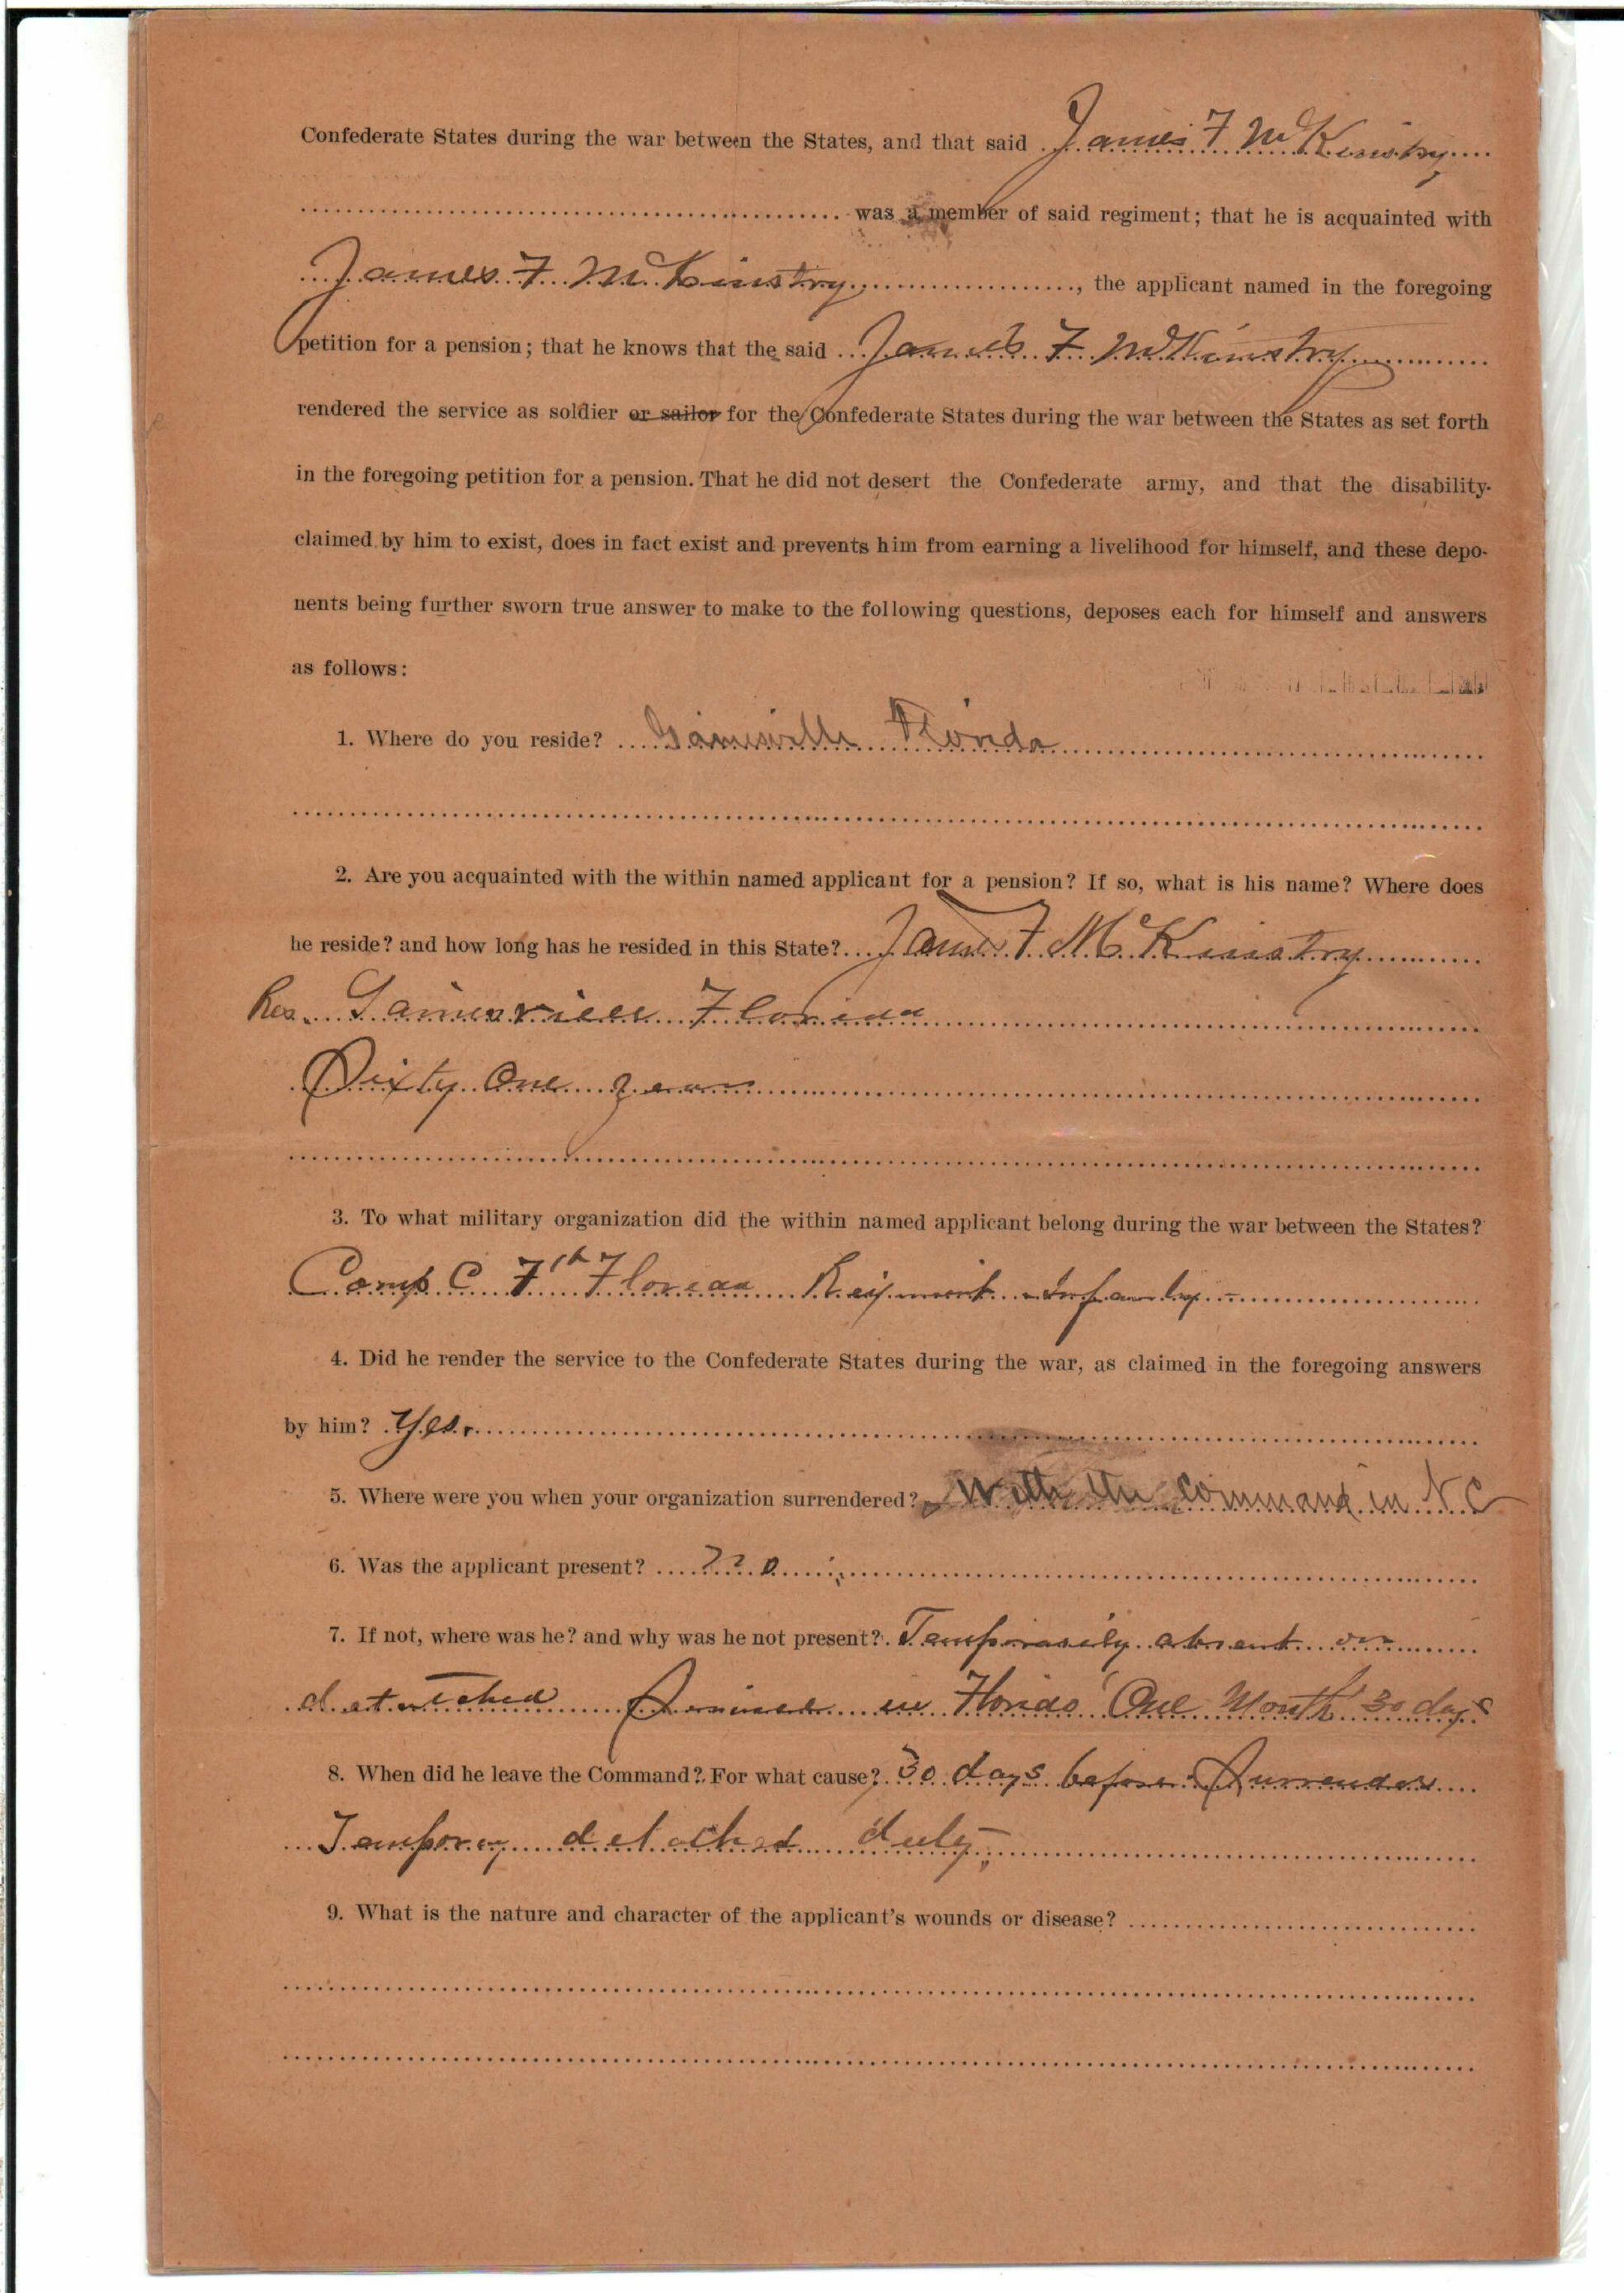 Confederate States during the war between the States, and that said James F McKinstry
was a member of said regiment; that he is acquainted with
James F McKinstry, the applicant named in the foregoing
petition for a pension; that he knows that the said James F McKinstry
rendered the service as soldier or sailor for the Confederate States during the war between the States as set forth
in the foregoing petition for a pension. That he did not desert the Confederate army, and that the disability
claimed by him to exist, does in fact exist and prevents him from earning a livelihood for himself, and these depo-
nents being further sworn true answer to make to the following questions, deposes each for himself and answers
as follows:
1. Where do you reside? Gainesville Florida
2. Are you acquainted with the within named applicant for a pension? If so, what is his name? Where does
he reside? and how long has he resided in this State? James F. McKinstry
Res. Gainesville Florida
Sixty One years
3. To what military organization did the within named applicant belong during the war between the States?
Comp C 7th Florida Regiment Infantry
4. Did he render the service to the Confederate States during the war, as claimed in the foregoing answers
by him? Yes.
5. Where were you when your organization surrendered? With the Command in N.C
6. Was the applicant present? No
7. If not, where was he? and why was he not present? Temporarily absent on
detatched Service in Florida One Month 30 days
8. When did he leave the Command? For what cause? 30 days before Surrender
Temporary detached duty
9. What is the nature and character of the applicant's wounds or disease?